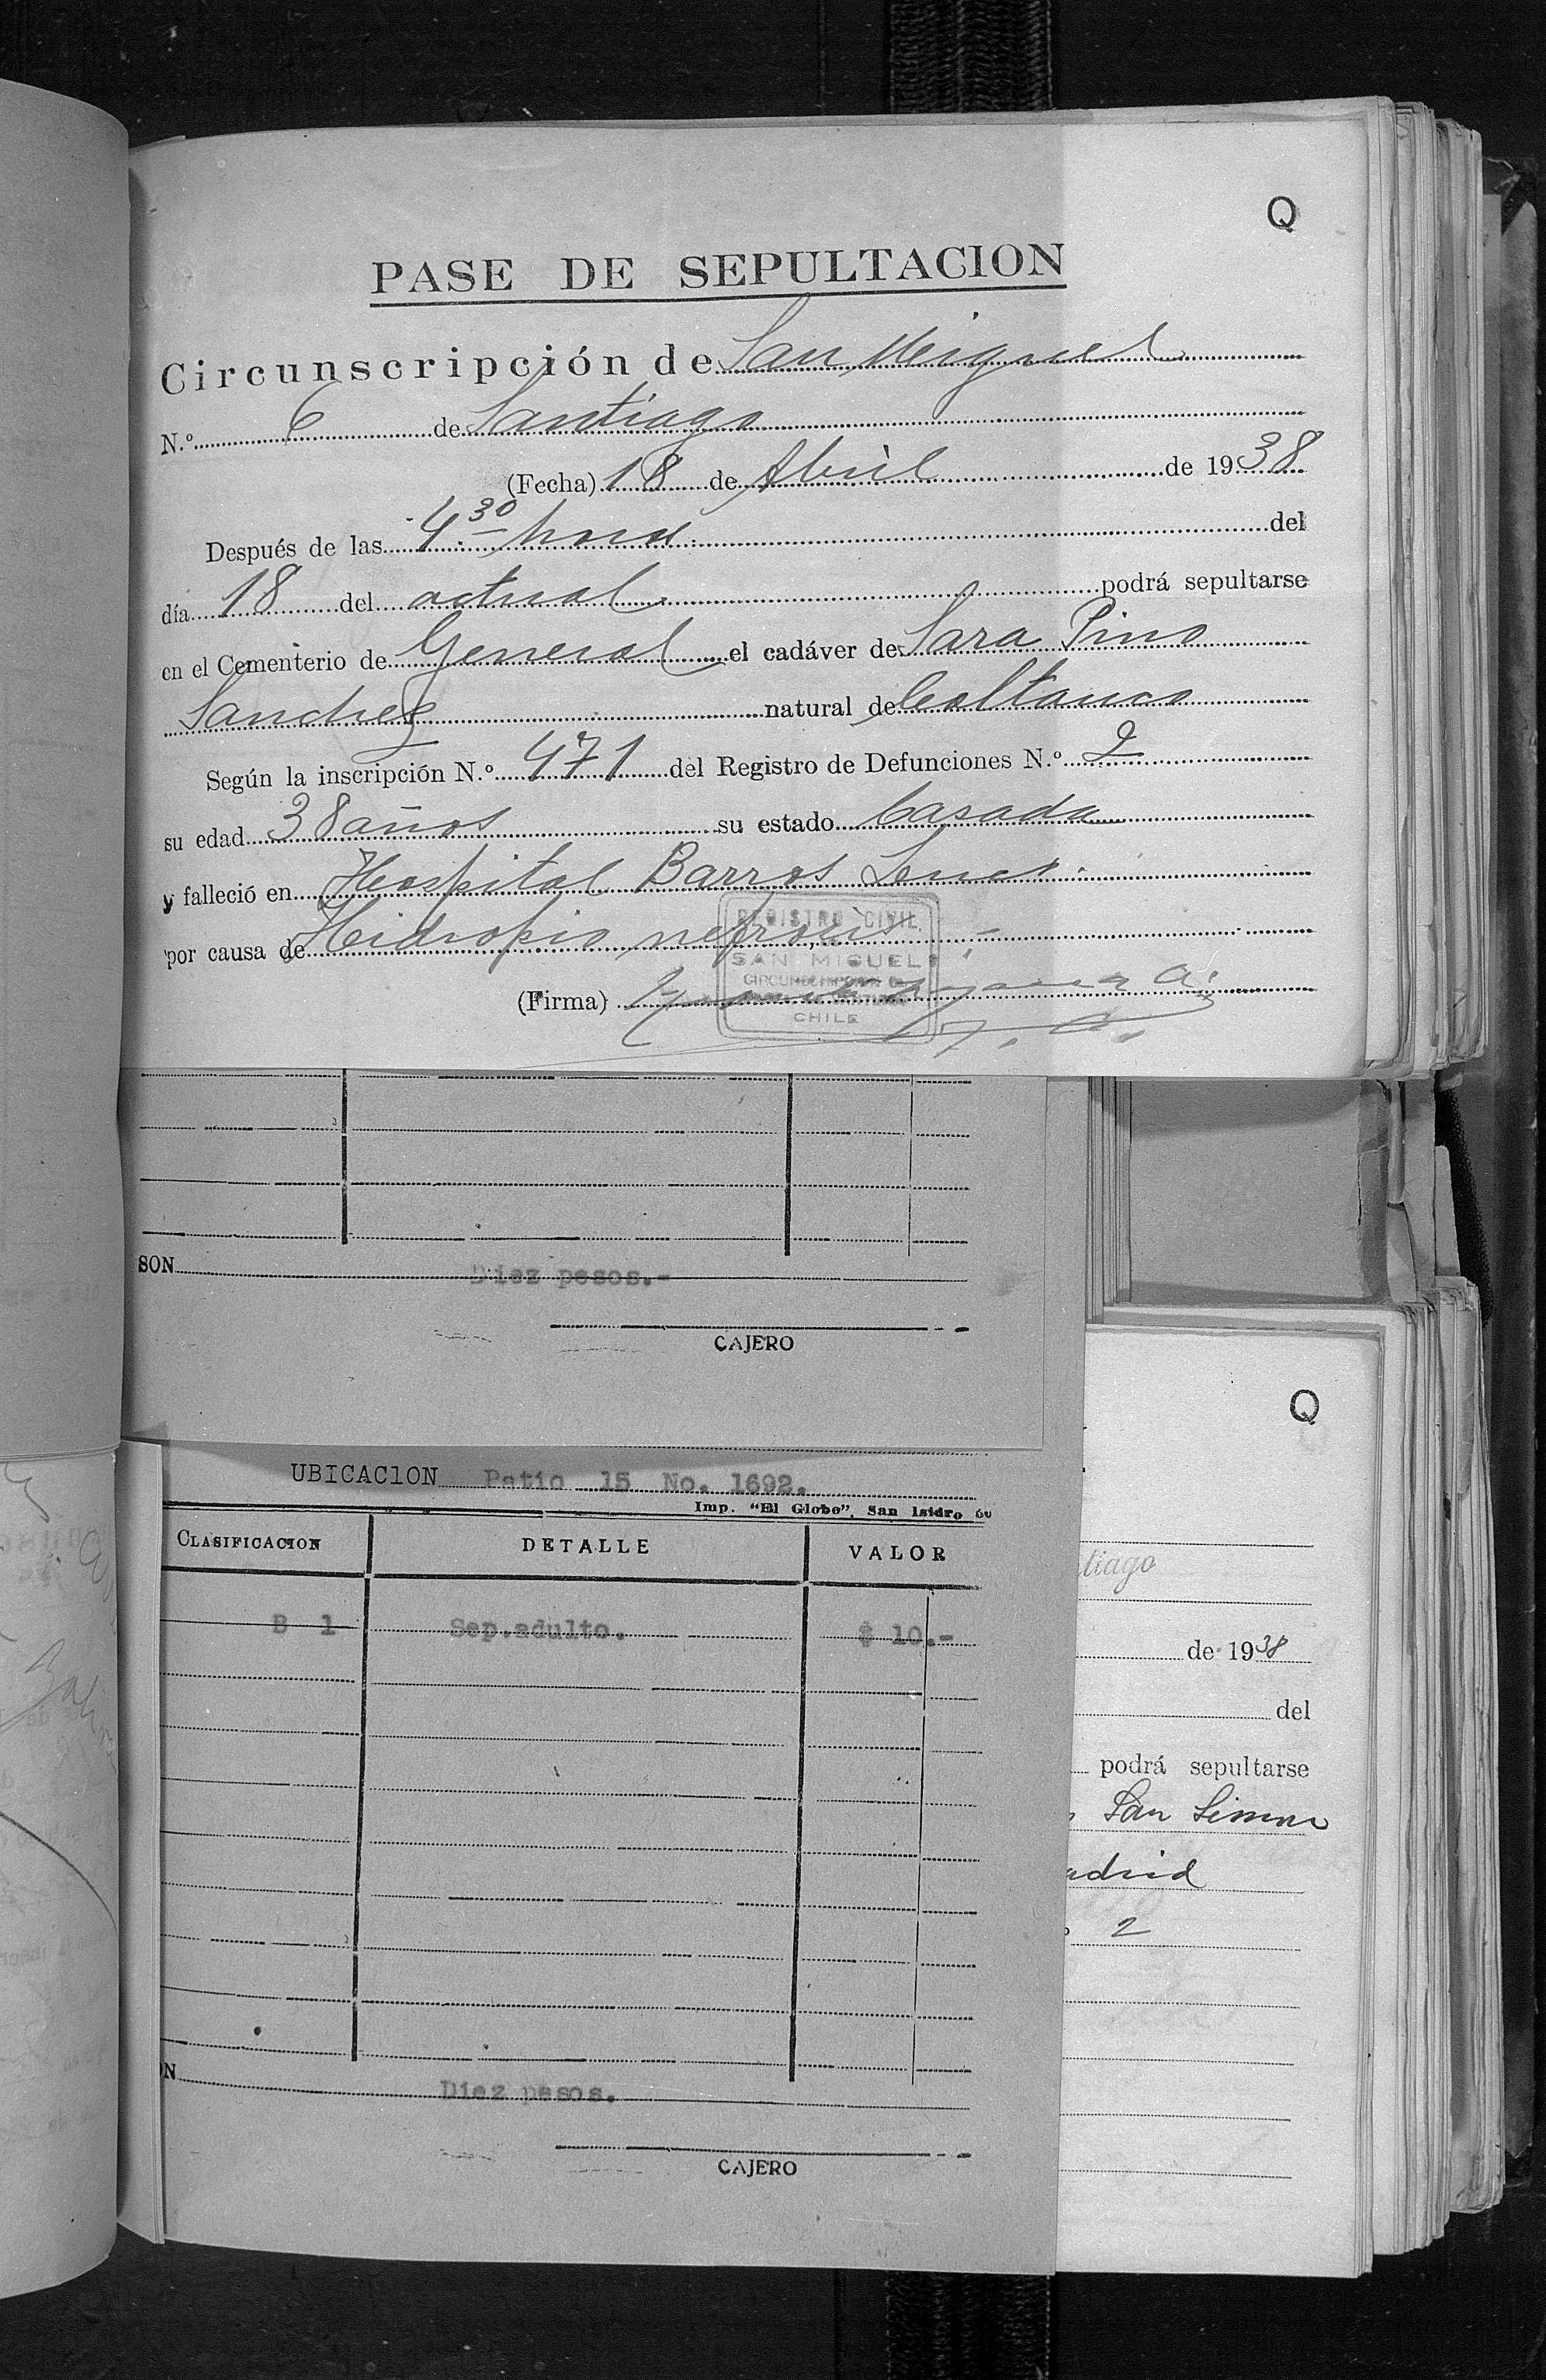 Q
PASE DE SEPULTACION
Circunscripción de San Miguel
N.º 6 de Santiago
(Fecha) 18 de Abril de 1938
Después de las 4 30 horas del
día 18 del actual podrá sepultarse
en el Cementerio de General el cadáver de Sara Pino
Sanchez natural de Coltauco
Según la inscripción N.º 471 del Registro de Defunciones N.º 2
su edad 38 años su estado Casada
y falleció en Hospital Barros Luco
por causa de Hidropio nefrosis
REGISTRO CIVIL
SAN MIGUEL
CIRCUNSCRIPCION
CHILE
(Firma)
SON Diez pesos.-
CAJERO
UBICACION Patio 15 No. 1692.
Imp. "El Globo", San Isidro
CLASIFICACION DETALLE VALOR
B 1 Sep.adulto. $ 10.-
N Diez pesos.
CAJERO
Q
tiago
de 1938
del
podrá sepultarse
San Simon
adrid
2